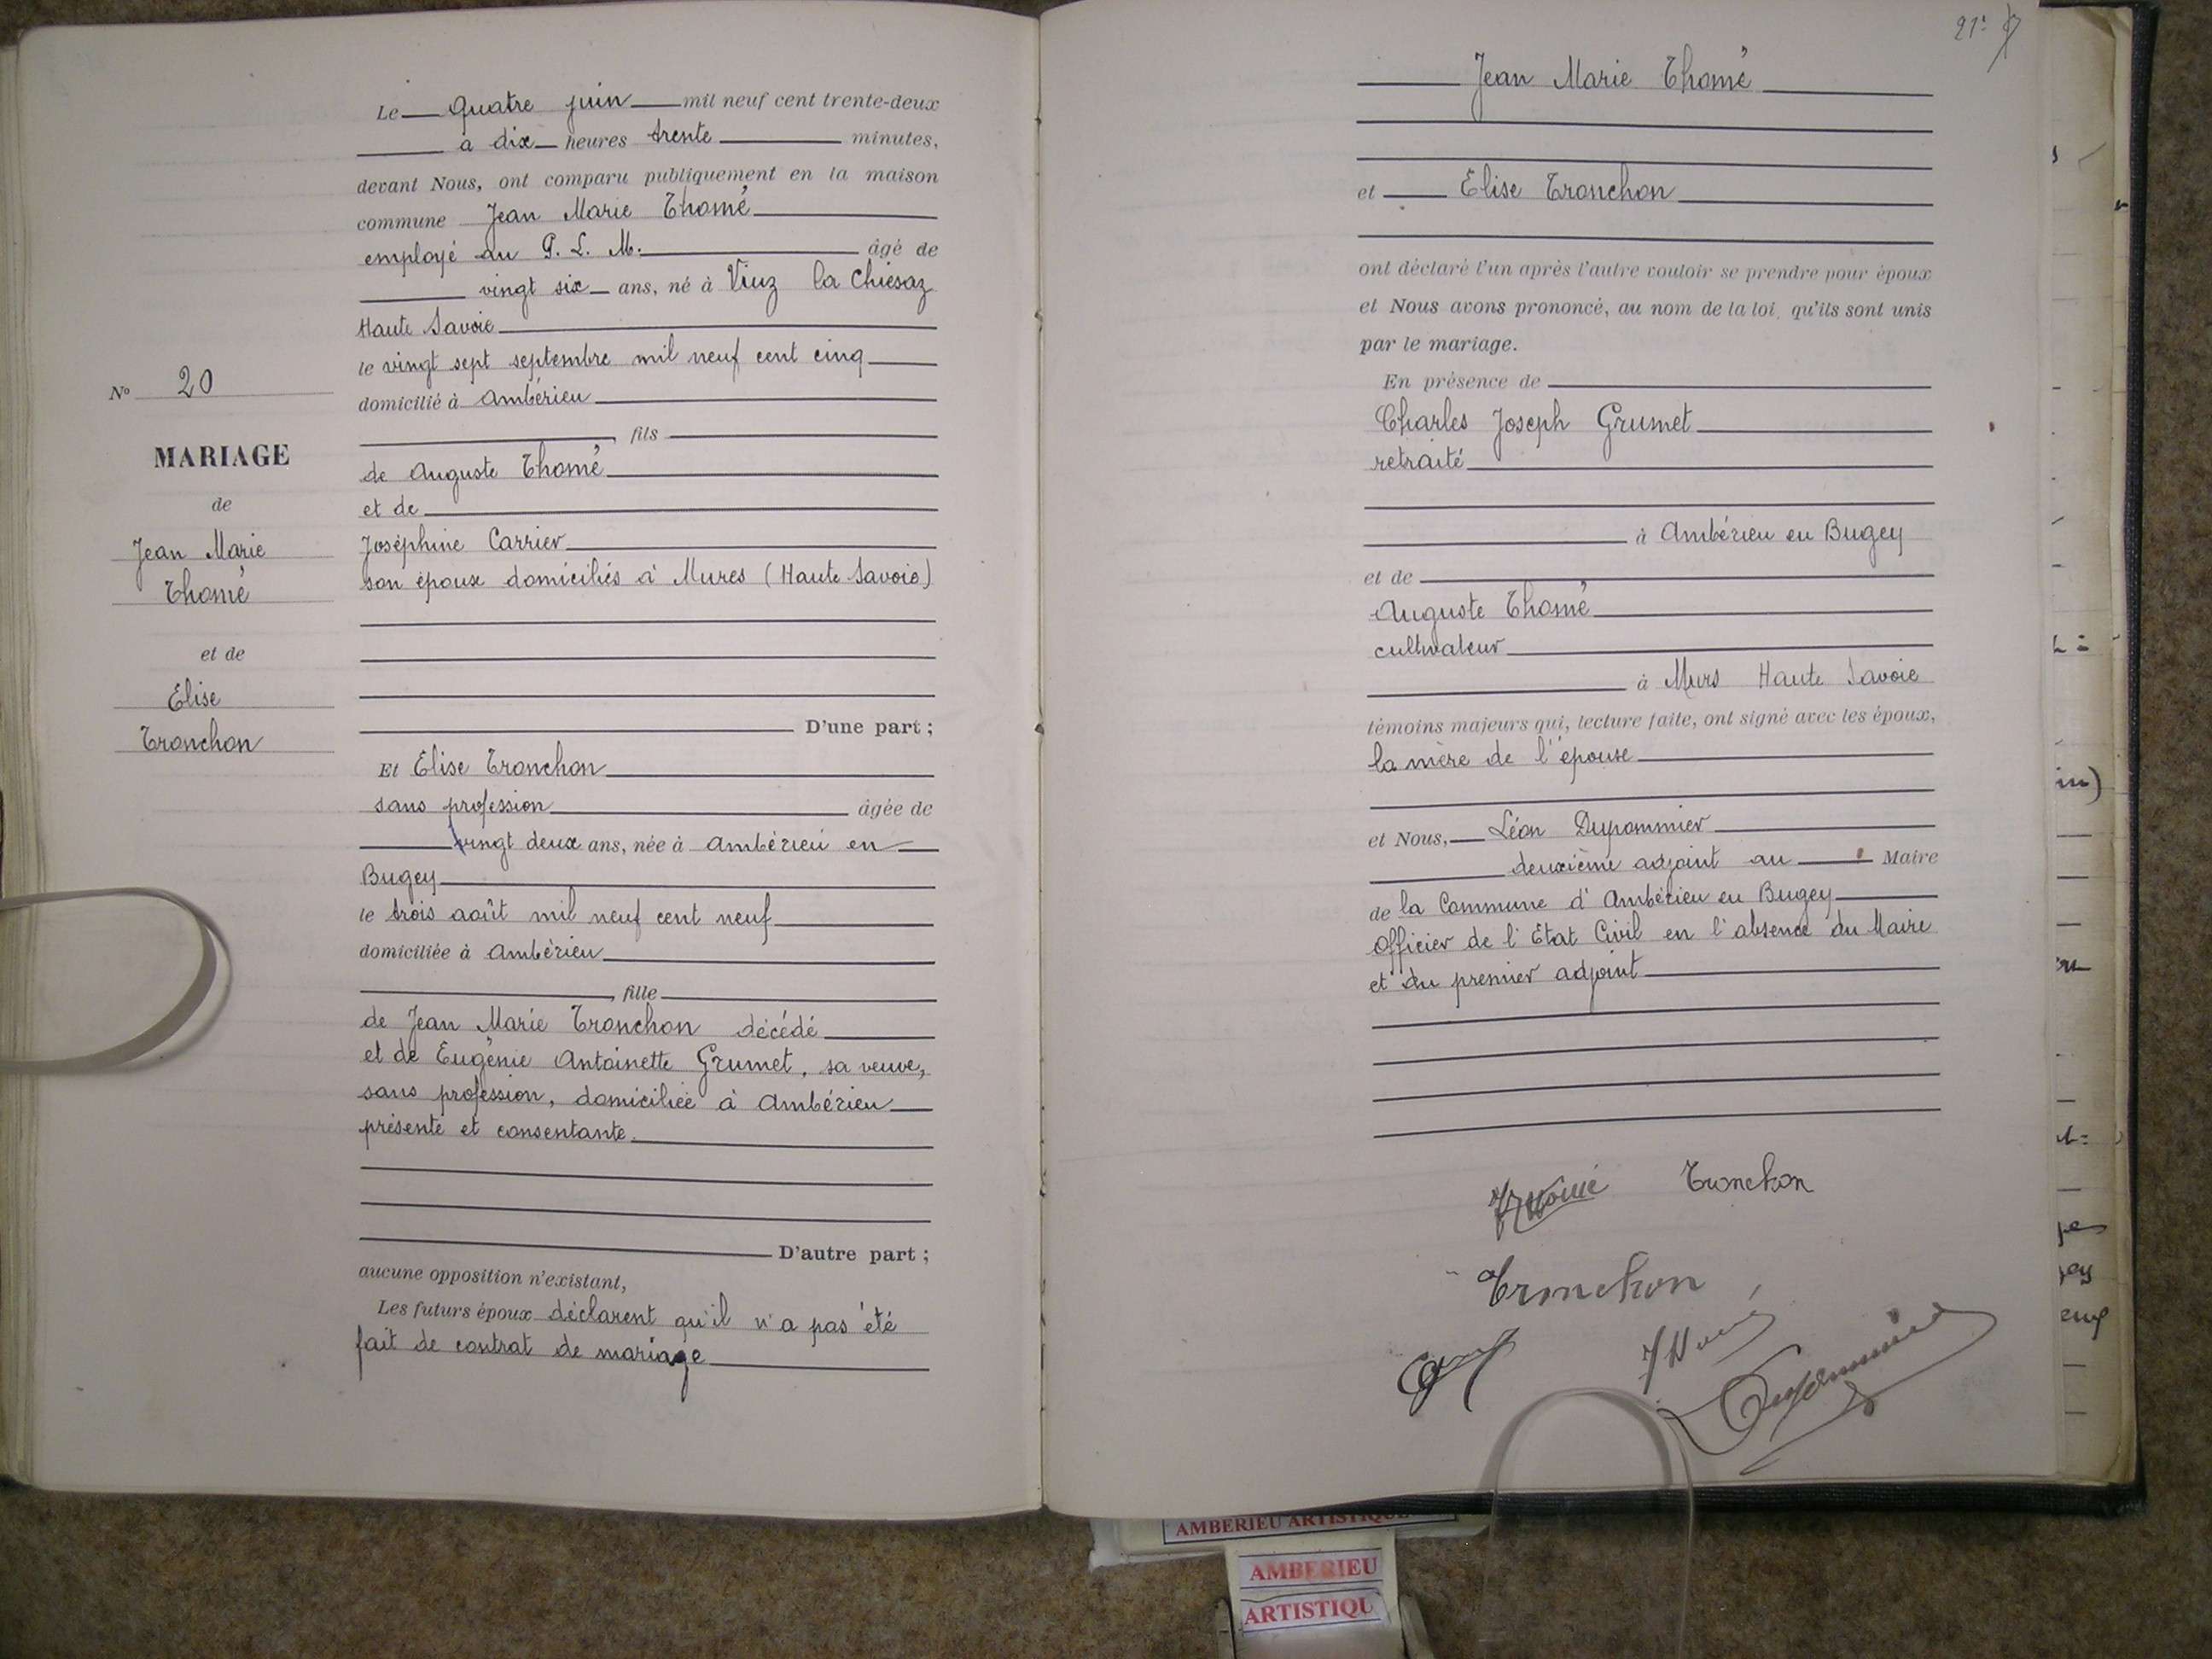 Le quatre juin mil neuf cent trente-deux
à dix heures trente minutes,
devant Nous, ont comparu publiquement en la maison
commune Jean Marie Thomé
employé au P. L. M. âgé de
vingt six ans, né à Viuz la Chiesaz
Haute Savoie
le vingt sept septembre mil neuf cent cinq
domicilié à Ambérieu
, fils
de Auguste Thomé
et de
Joséphine Carrier
son époux domiciliés à Mures (Haute Savoie)
D'une part ;
Et Elise Tronchon
sans profession âgée de
vingt deux ans, née à Ambérieu en
Bugey
le trois août mil neuf cent neuf
domiciliée à Ambérieu
, fille
de Jean Marie Tronchon décédé
et de Eugénie Antoinette Grumet, sa veuve,
sans profession, domiciliée à Ambérieu
présente et consentante.
D'autre part ;
aucune opposition n'existant,
Les futurs époux déclarent qu'il n'a pas été
fait de contrat de mariage
No 20
MARIAGE
de
Jean Marie
Thomé
et de
Elise
Tronchon
21
Jean Marie Thomé
et Elise Tronchon
ont déclaré l'un après l'autre vouloir se prendre pour époux
et Nous avons prononcé, au nom de la loi, qu'ils sont unis
par le mariage.
En présence de
Charles Joseph Grumet
retraité
à Ambérieu en Bugey
et de
Auguste Thomé
cultivateur
à Murs Haute Savoie
témoins majeurs qui, lecture faite, ont signé avec les époux,
la mère de l'épouse
et Nous, Léon Dupommier
deuxième adjoint au Maire
de la Commune d'Ambérieu en Bugey
Officier de l'Etat Civil en l'absence du Maire
et du premier adjoint
Thomé Tronchon
Tronchon
Thomé
Dupommier
AMBERIEU ARTISTIQUE
AMBERIEU
ARTISTIQU